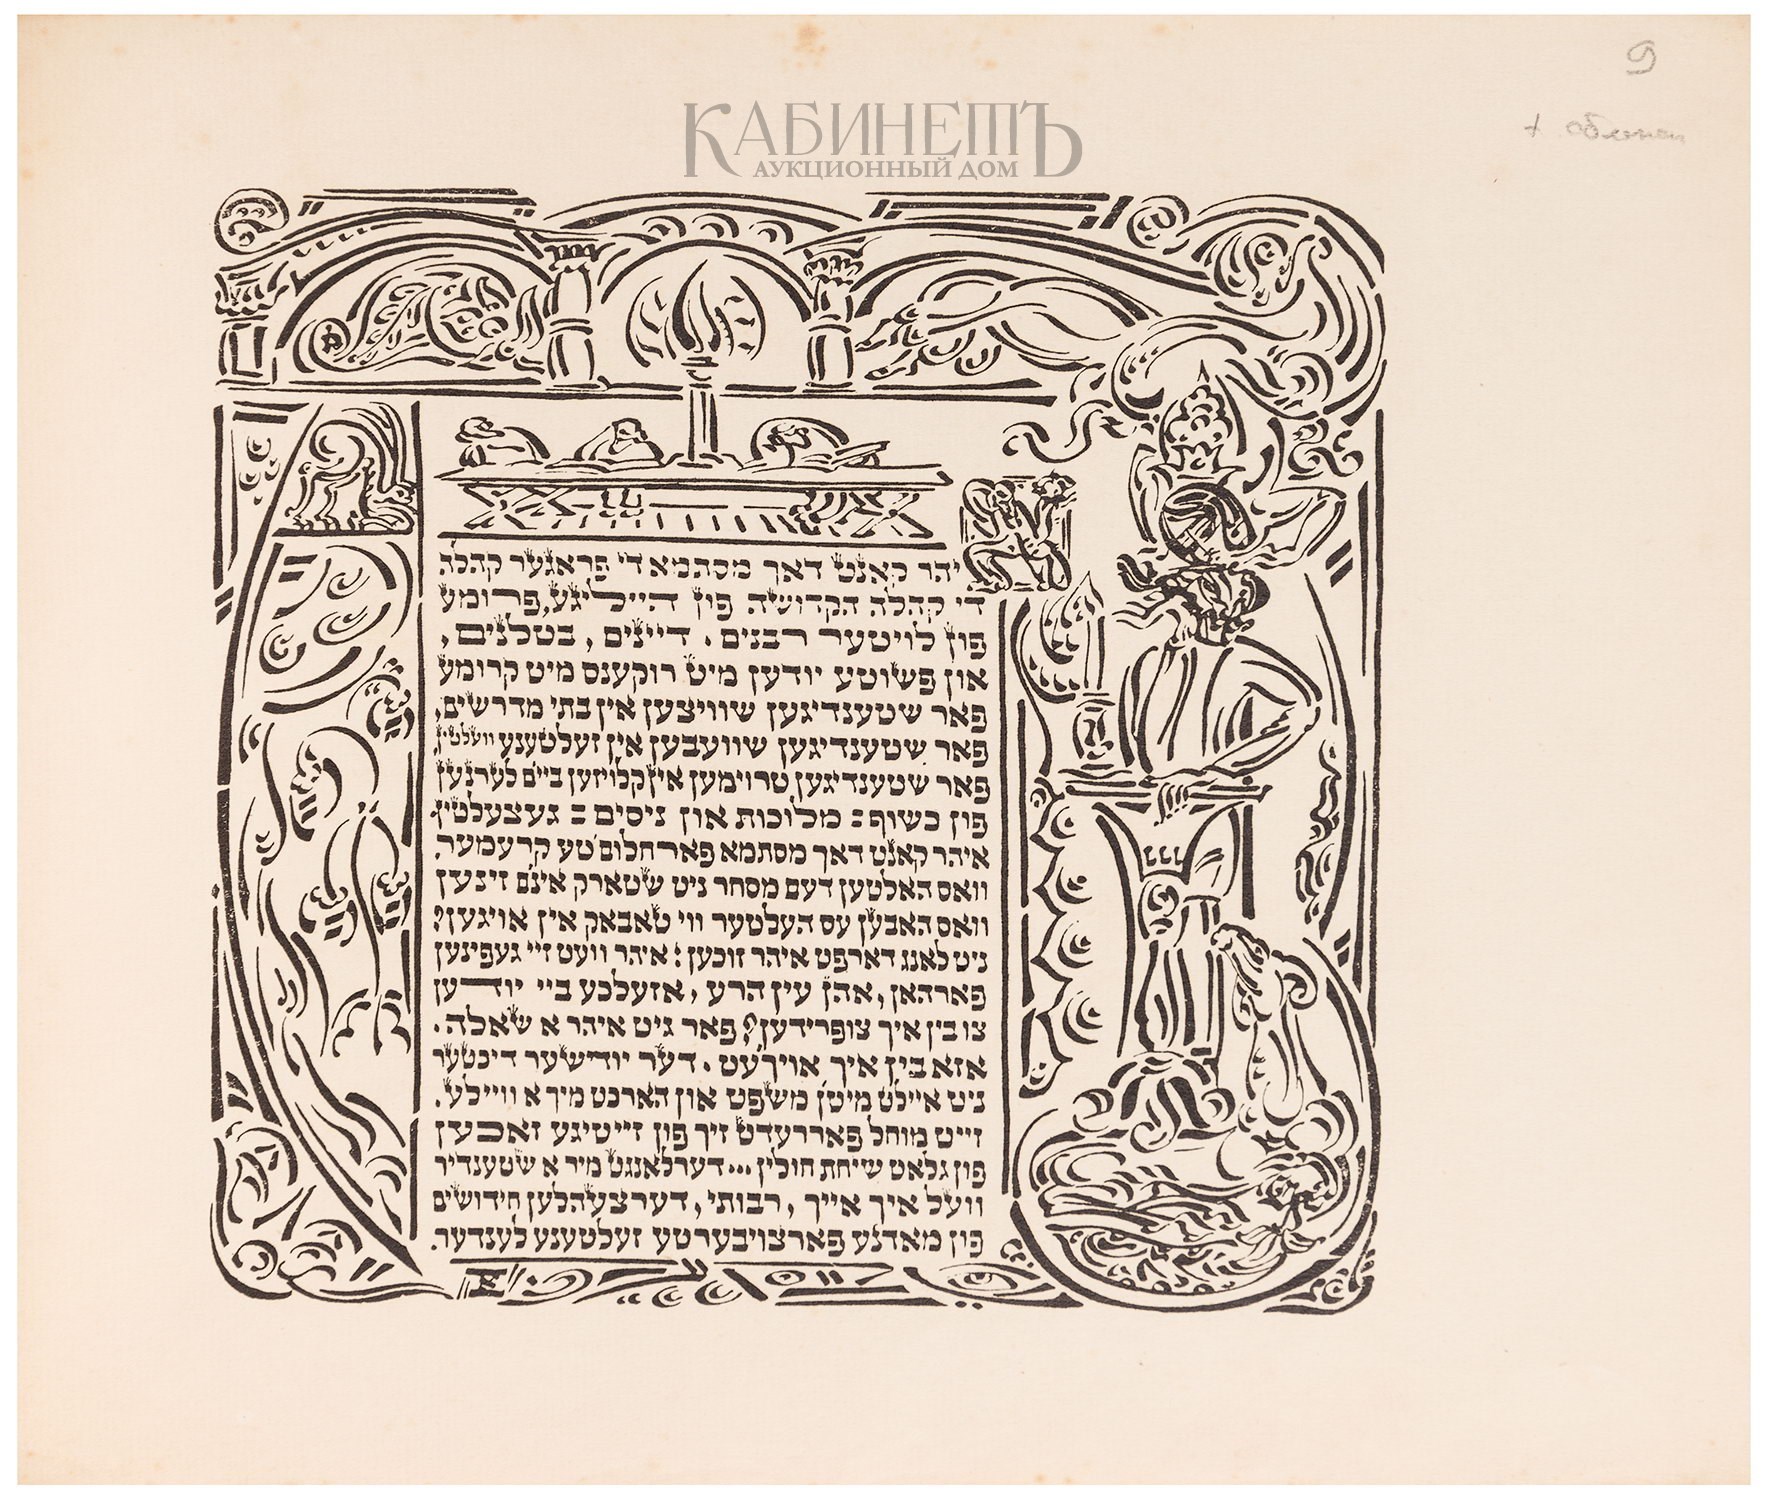 КАБИНЕТЪ
АУКЦИОННЫЙ ДОМ
איהר קאנט דאך מסתמא די פראגער קהלה
די קהלה הקדושה פון הייליגע, פרומע
פון לויטער רבנים, דיינים, בטלנים,
און פשוטע יודען מיט רוקענס מיט קרומע
פאר שטענדיגען שוויצען אין בתי מדרשים,
פאר שטענדיגען שוועבען אין זעלטענע וועלטין
פאר שטענדיגען טרוימען אין קלויזען ביים לערנען
פון כשוף= מלוכות און ניסים = געצעלטין.
איהר קאנט דאך מסתמא פארחלום'טע קרעמער.
וואס האלטען דעם מסחר ניט שטארק אינם זינען
וואס האבען עס העלטער ווי טאבאק אין אויגען?
ניט לאנג דארפט איהר זוכען: איהר וועט זיי געפינען
פארהאן, אהן עין הרע, אזעלכע ביי יודען
צו בין איך צופרידען? פאר גיט איהר א שאלה.
אזא בין איך אויך'עט. דער יודישער דיכטער
ניט איילט מיטן משפט און הארכט מיך א וויילע.
זייט מוחל פאררעדט זיך פון זייטיגע זאכען
פון גלאט שיחת חולין... דערלאנגט מיר א שטענדיר
וועל איך אייך, רבותי, דערצעהלען חידושים
פון מאדנע פארצויבערטע זעלטענע לענדער.